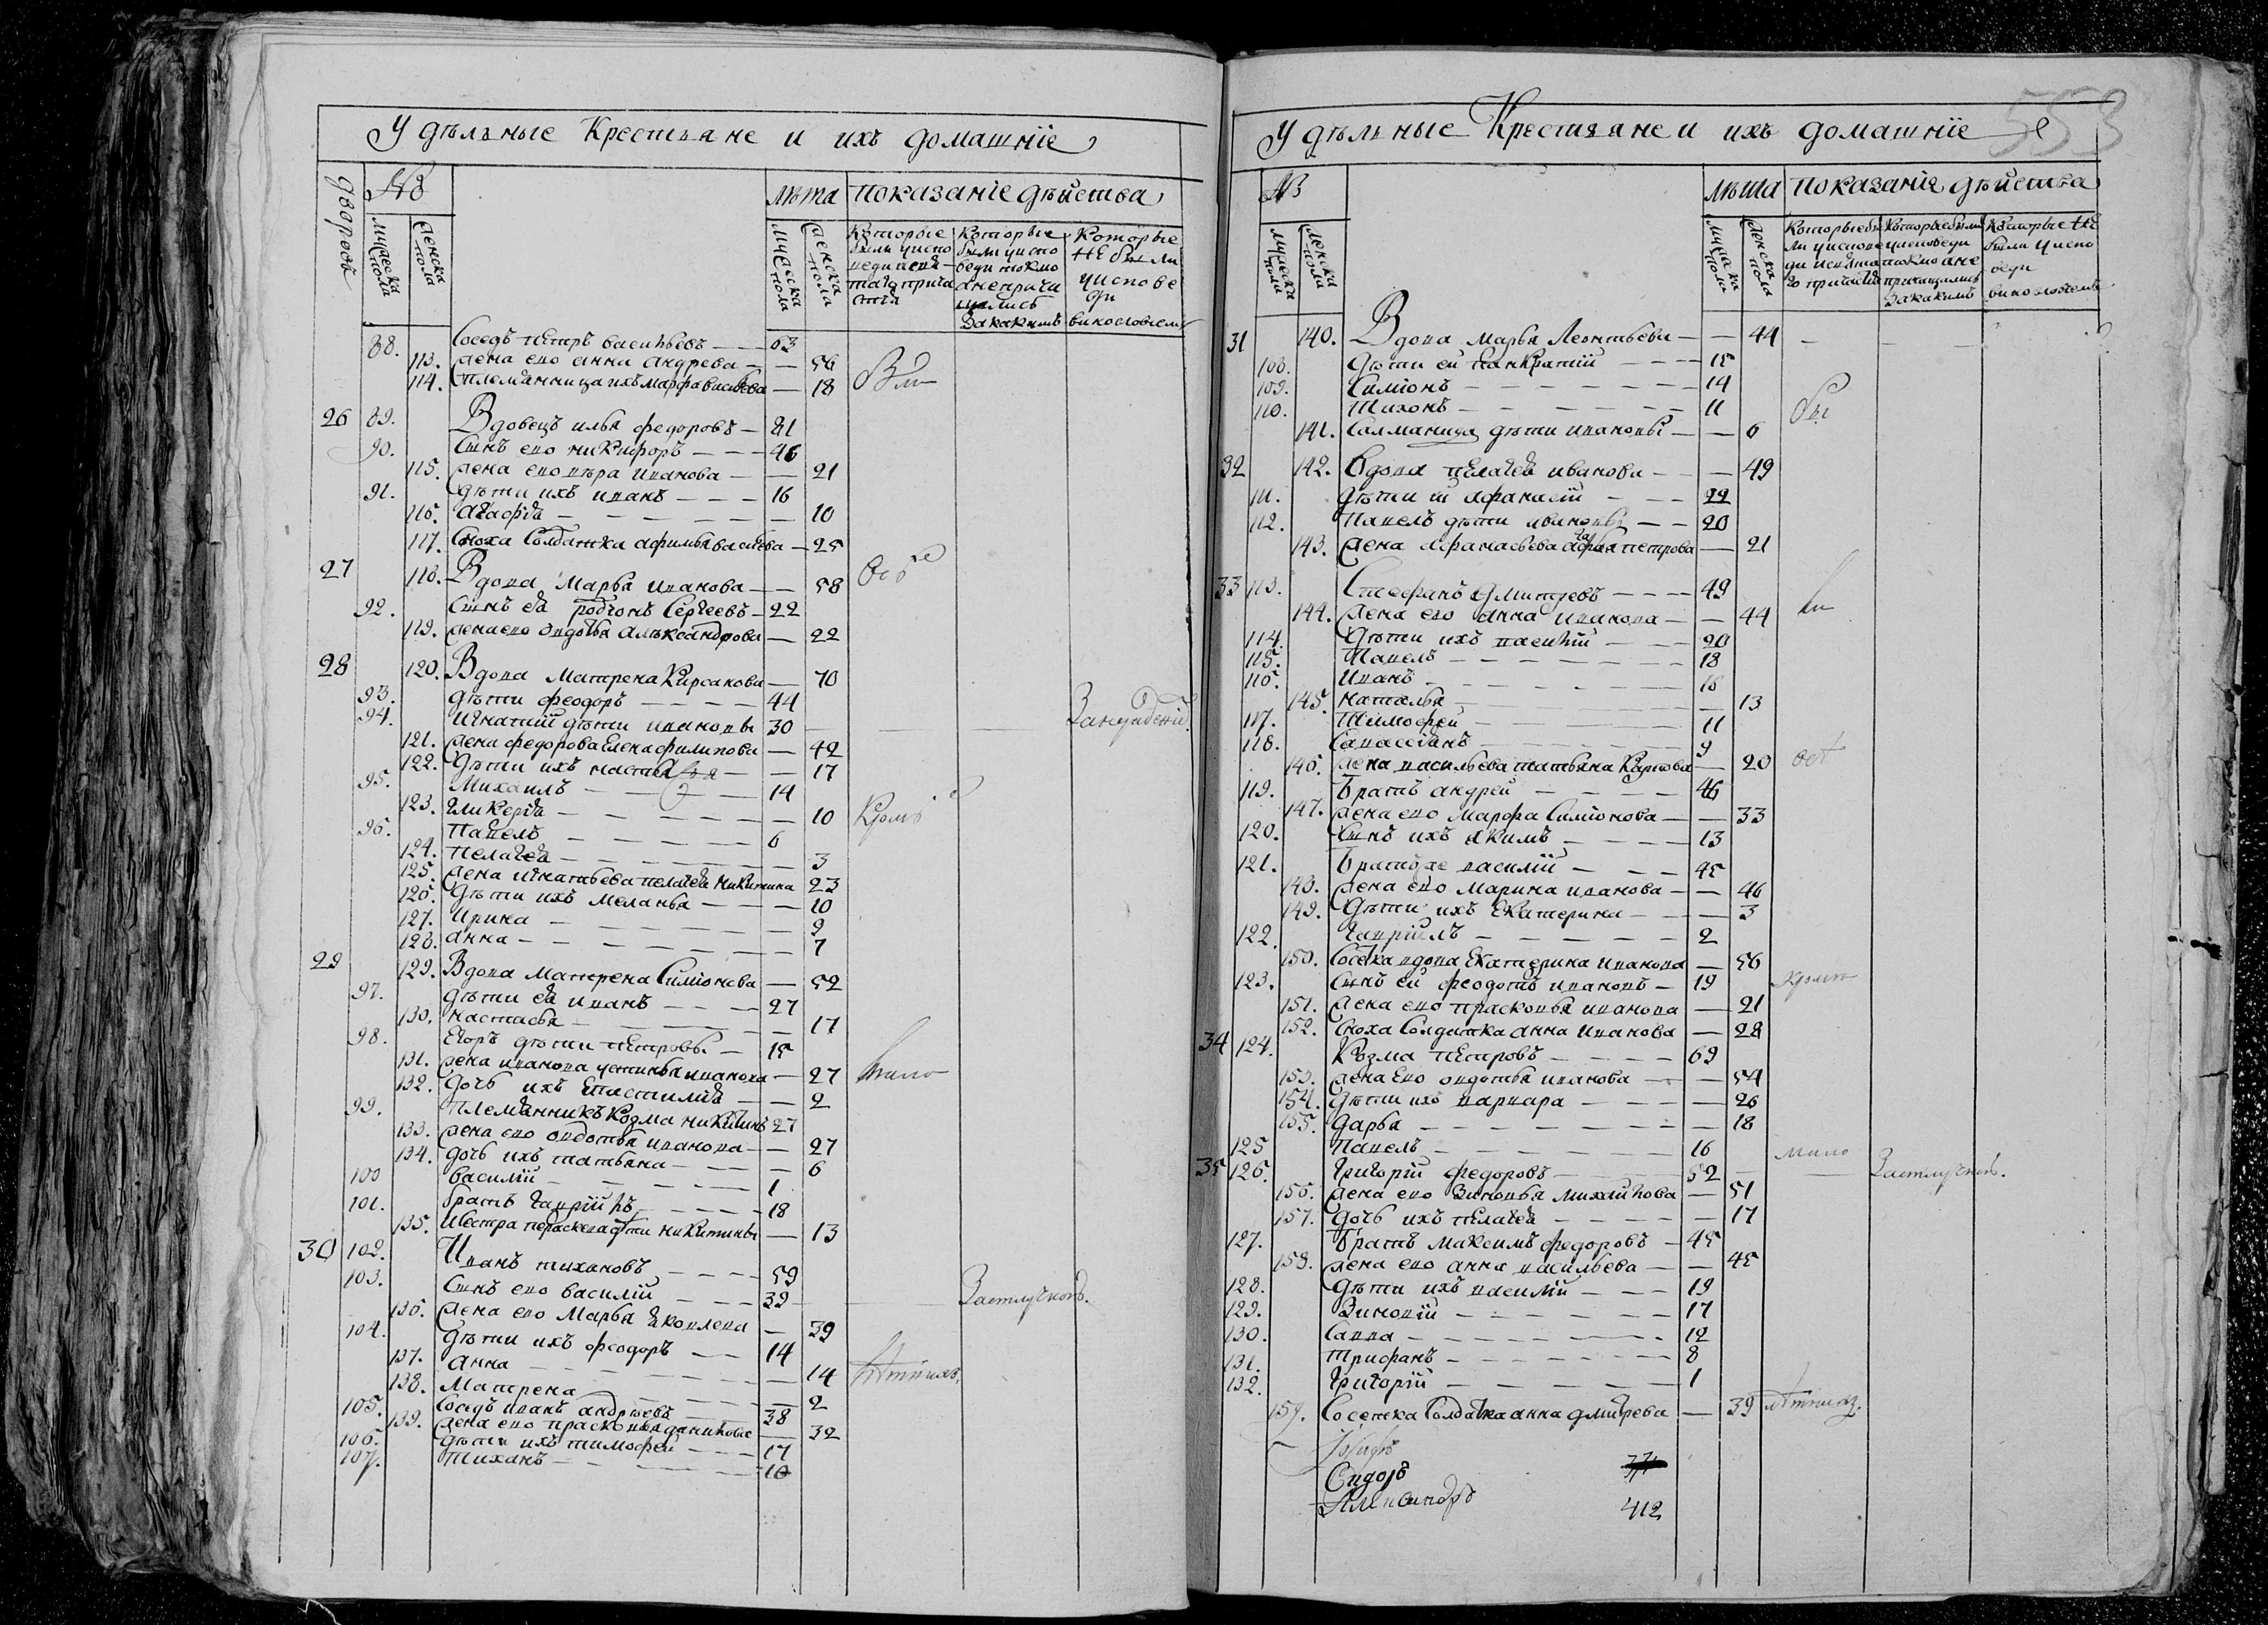 Удѣльные Крестьяне и ихъ домашніе
дворовъ
№
лѣта
показаніе дѣйства
мужеска пола
женска пола
мужеска пола
женска пола
Которые были у исповеди и святаго причастія
Которые были у исповеди токмо а не причащались За какимъ
Которые не были у исповеди
винословіемъ
88. Соседъ петръ васильевъ — 63
113. жена ево анна андрева — 56
114. племянница ихъ марфа васильева — 18
26 89. Вдовецъ илья федоровъ — 81
90. Сынъ ево никифоръ — 46
115. жена ево вѣра иванова — 21
91. дѣти ихъ иванъ — 16
116. агафія — 10
117. Сноха Солдатка афимья васильева — 25
27 118. Вдова Марья иванова — 58
92. Сынъ ея родіонъ Сергеевъ — 22
119. жена ево овдотья александрова — 22
28 120. Вдова Матрена Кирсанова — 70
93. дѣти феодоръ — 44
94. Игнатий дѣти ивановы 30
121. жена федорова Елена филипова — 42
122. дѣти ихъ настасья — 17
95. Михаилъ — 14
123. гликерія — 10
96. Павелъ — 6
124. пелагея — 3
125. жена игнатьева пелагея никитина 23
126. дѣти ихъ меланья — 10
127. Ирина — 9
128. анна — 7
29 129. Вдова Матрена Симіонова — 52
97. дѣти ея иванъ — 27
130. настасья — 17
98. Егоръ дѣти петровы — 15
131. жена иванова устинья иванова — 27
132. дочь ихъ Епистимія — 2
99. племянникъ Козма никитинъ 27
133. жена ево овдотья иванова — 27
134. дочь ихъ татьяна — 6
100 василий — 1
101. братъ гаврийлъ — 18
135. И Сестра параскева дѣти никитины — 13
30 102. Иванъ тихановъ — 59
103. Сынъ ево василій — 39 За отлучкою.
136. жена ево Марья яковлева — 39
104. дѣти ихъ феодоръ — 14
137. анна — 14
138. Матрена — 2
105. Соседъ иванъ андреевъ 38
139. жена ево прасковья данилова 32
106. дѣти ихъ тимофей — 17
107. тиханъ — 10
553
Удѣльные Крестьяне и ихъ домашніе
№
лѣта
показаніе дѣйства
мужеска пола
женска пола
мужеска пола
женска пола
Которые были у исповеди и святаго причастія
Которые были у исповеди токмо а не причащались За какимъ
Которые не были у исповеди
винословіемъ
31 140. Вдова Марья Леонтьева — 44
108. дѣти ей панкратий — 15
109. Симіонъ — 14
110. Тихонъ — 11
141. Саломанида дѣти ивановы — 6
32 142. Вдова пелагея иванова — 49
111. дѣти ей афанасій — 22
112. Павелъ дѣти ивановы — 20
143. жена афанасьева агафья петрова — 21
33 113. Стефанъ дмитреевъ — 49
144. жена ево анна иванова — 44
114. дѣти ихъ василій — 20
115. Павелъ — 18
116. Иванъ — 16
145. наталья — 13
117. Тимофей — 11
118. Савассіанъ — 9
146. жена васильева татьяна Карпова — 20
119. братъ андрей — 46
147. жена ево Марфа Симіонова — 33
120. Сынъ ихъ акимъ — 13
121. братъ же василій — 45
148. жена ево марина иванова — 46
149. дѣти ихъ Екатерина — 3
122. гаврійлъ — 2
150. Соседка вдова Екатерина иванова — 56
123. Сынъ ей феодотъ ивановъ — 19
151. жена ево прасковья иванова — 21
152. Сноха Солдатка анна иванова — 28
34 124. Козма петровъ — 69
153. жена Ево овдотья иванова — 54
154. дѣти ихъ варвара — 26
155. дарья — 18
125 Павелъ — 16
35 126. григорій федоровъ — 52 За отлучкою.
156. жена ево Зиновья михайлова — 51
157. дочь ихъ пелагея — 17
127. братъ максимъ федоровъ — 45
158. жена ево анна васильева — 45
128. дѣти ихъ василій — 19
129. Зиновій — 17
130. Савва — 12
131. трифанъ — 8
132. григорій — 1
159. Соседка Солдатка анна дмитрева — 39
Сидоръ
Александръ 412